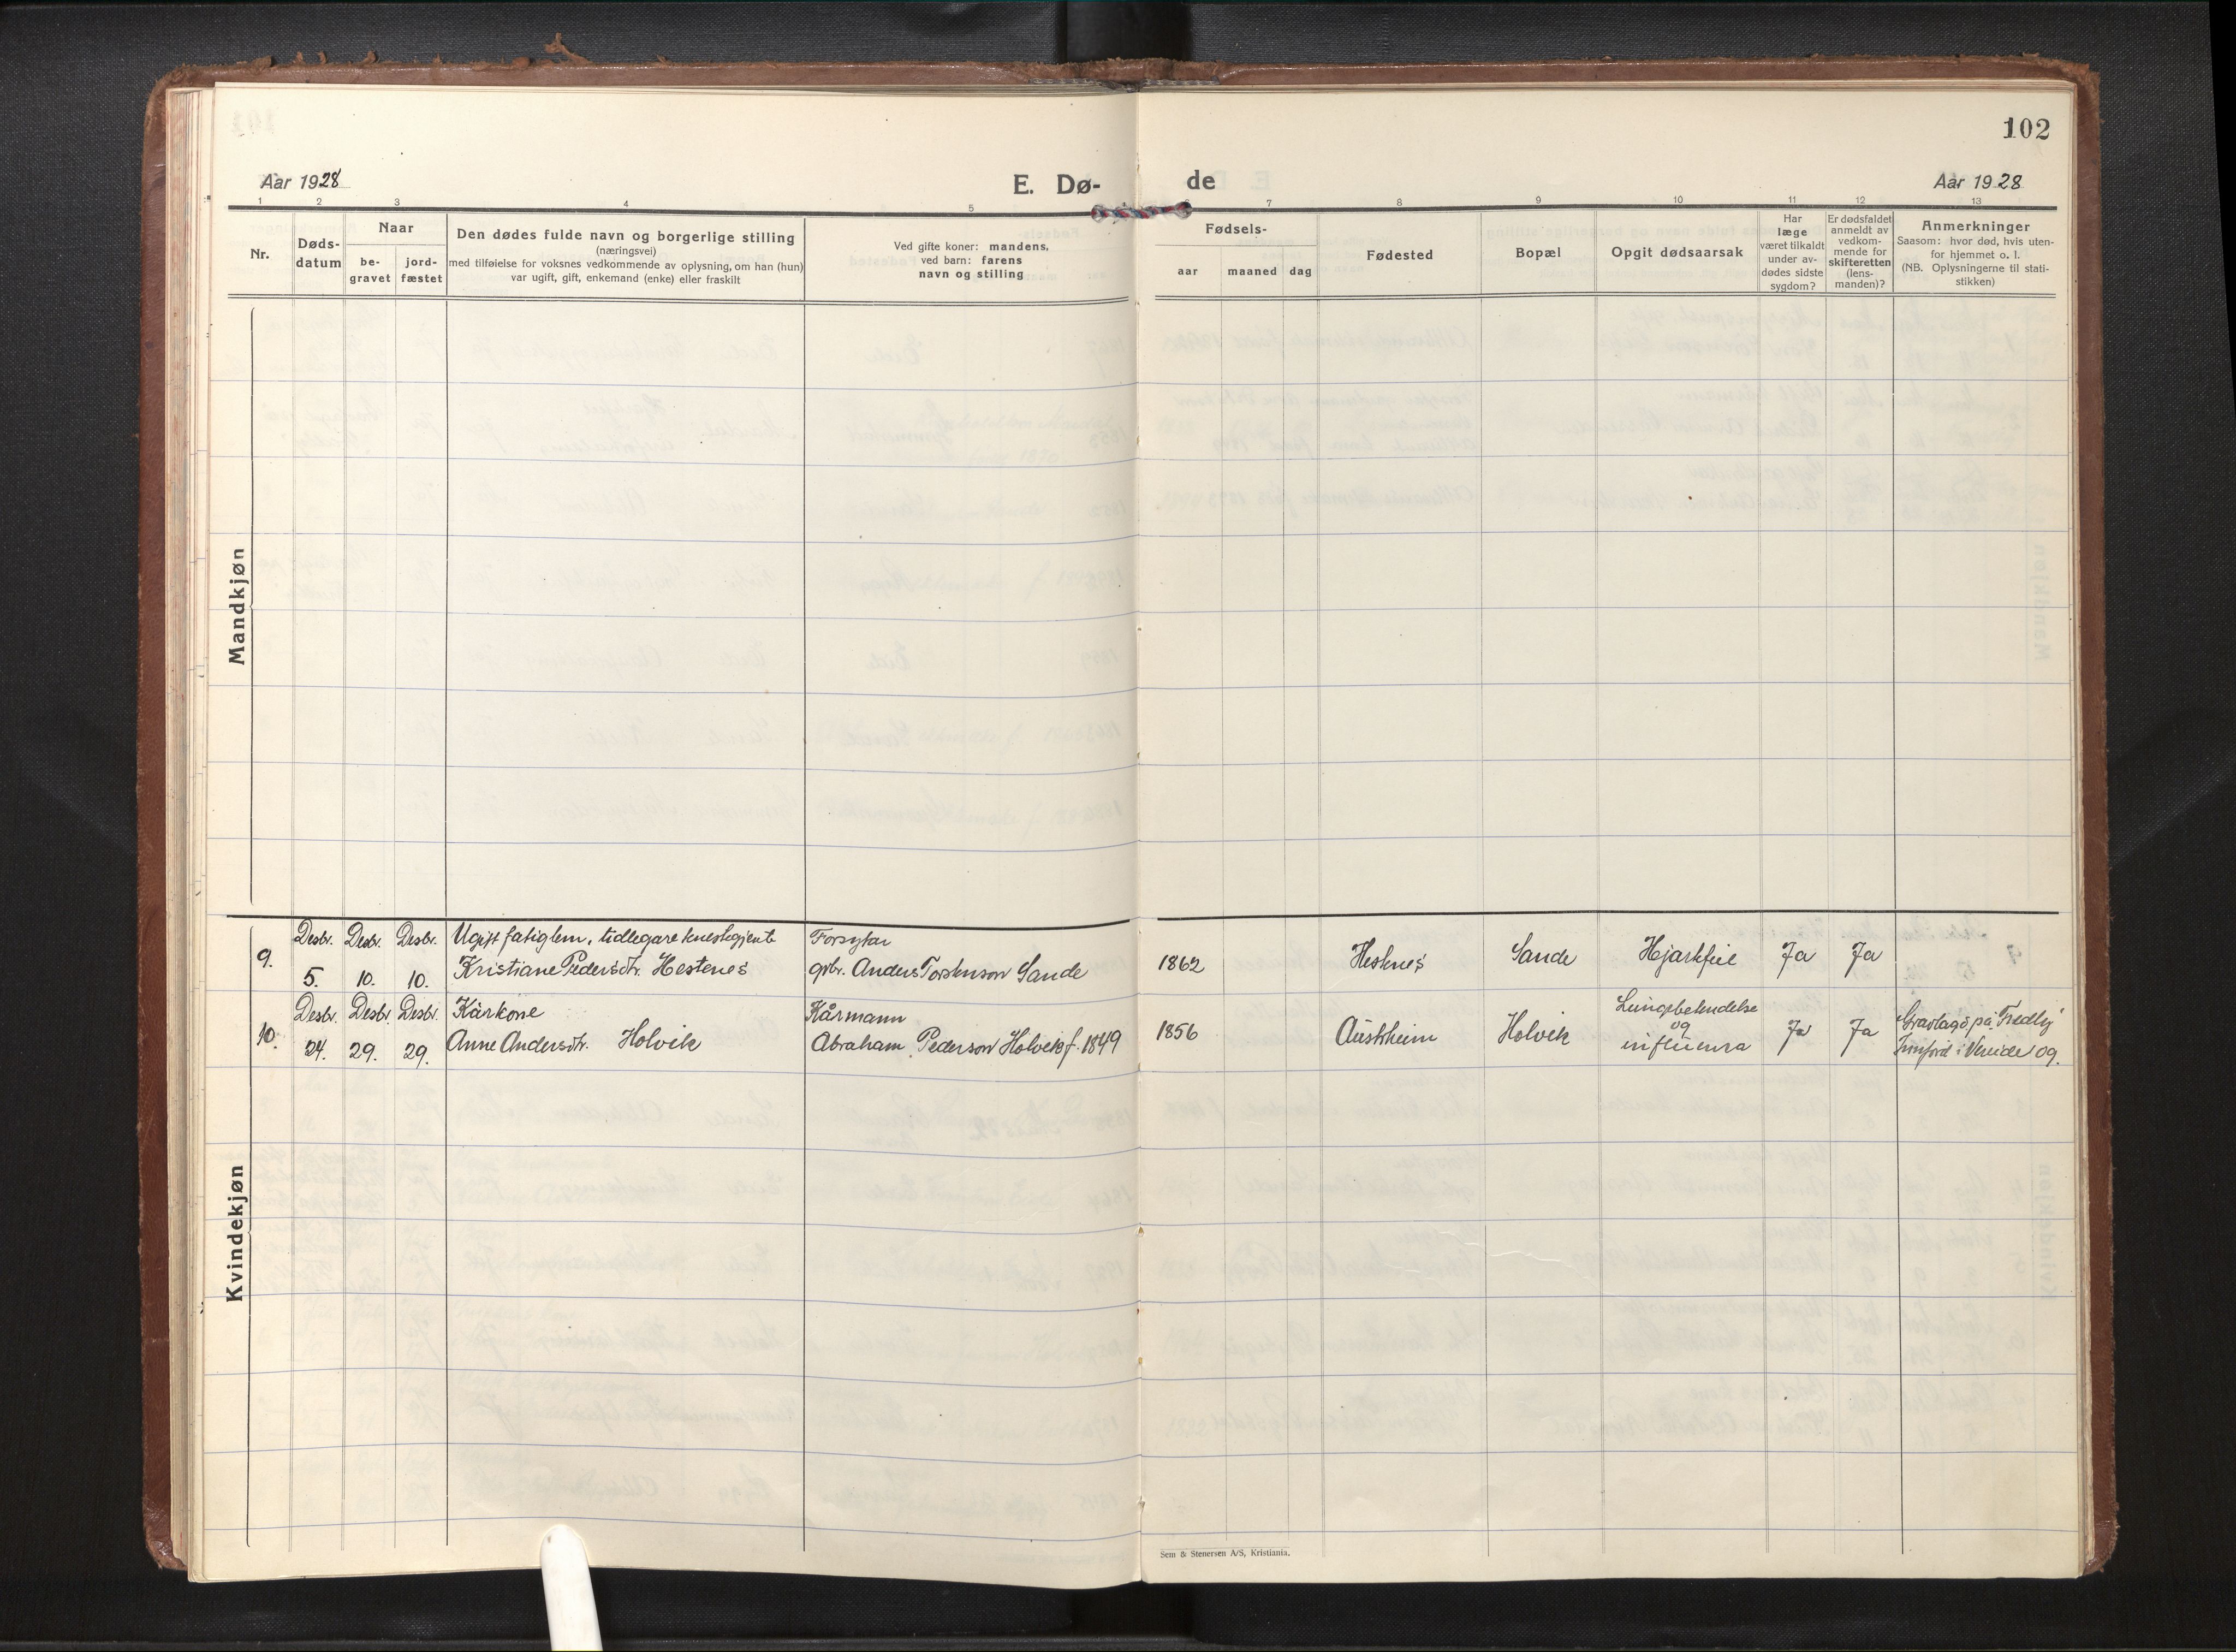 102
Aar 1928
E. Dø-
de
Aar 1928
1 2 3 4 5 7 8 9 10 11 12 13
Nr.
Døds-
datum
Naar
be-
gravet
jord-
fæstet
Den dødes fulde navn og borgerlige stilling
(næringsvei)
med tilføielse for voksnes vedkommende av oplysning, om han (hun)
var ugift, gift, enkemand (enke) eller fraskilt
Ved gifte koner: mandens,
ved barn: farens
navn og stilling
Fødsels-
aar
maaned
dag
Fødested
Bopæl
Opgit dødsaarsak
Har
læge
været tilkaldt
under av-
dødes sidste
sygdom?
Er dødsfaldet
anmeldt av
vedkom-
mende for
skifteretten
(lens-
manden)?
Anmerkninger
Saasom: hvor død, hvis uten-
for hjemmet o. l.
(NB. Oplysningerne til stati-
stikken)
Mandkjøn
Kvindekjøn
9.
Desbr.
5.
Desbr.
10.
Desbr.
10.
Ugift fatiglem, tidlegare
Kristiane Pedersdtr. Hestenes
Forsytar
gbr. Anders Torstenson Sande
1862
Hestnes
Sande
Hjartefeil
Ja
Ja
10.
Desbr.
24.
Desbr.
29.
Desbr.
29.
Kårkone
Anne Andersdtr. Holvik
Kårmann
Abraham Pederson Holvik f. 1849
1856
Austrheim
Holvik
Lungebetendelse
og
influenza
Ja
Ja
Gravlagd på
i
Sem & Stenersen A/S, Kristiania.